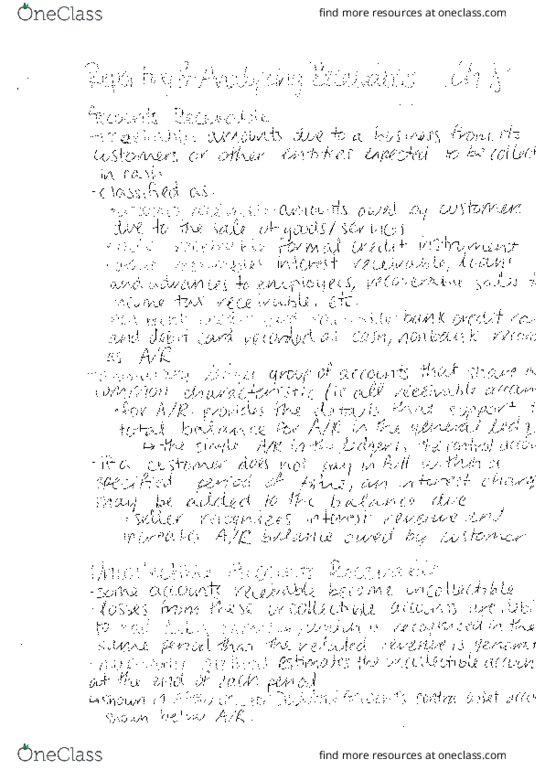 OneClass
find more resources at oneclass.com
Reporting & Analyzing Receivables Ch 8
Accounts Receivable
amounts due to a business from its
customers or other entities expected to be collect
in cash
-classified as
amounts owed by customers
due to the sale of goods/services
receivable formal credit instrument
interest receivable, loans
and advances to employees, recoverable sales t
income tax receivable, etc.
bank credit ca
and debit card recorded as cash, nonbank recor
as A/R
group of accounts that share a
common characteristic (ie all receivable accoun
for A/R provides the details that support t
total balance for A/R in the general ledg
↳ the single A/R in the ledger is the control accou
-if a customer does not pay in full within a
specified period of time, an interest charg
may be added to the balance due
seller recognizes interest revenue and
increases A/R balance owed by customer
Uncollectible Accounts Receivable
-some accounts receivable become uncollectible
-losses from these uncollectible accounts are
to is recognized in the
same period that the related revenue is generat
estimates the uncollectible accoun
at the end of each period
↳shown in Accounts contra asset accou
shown below A/R.
OneClass
find more resources at oneclass.com